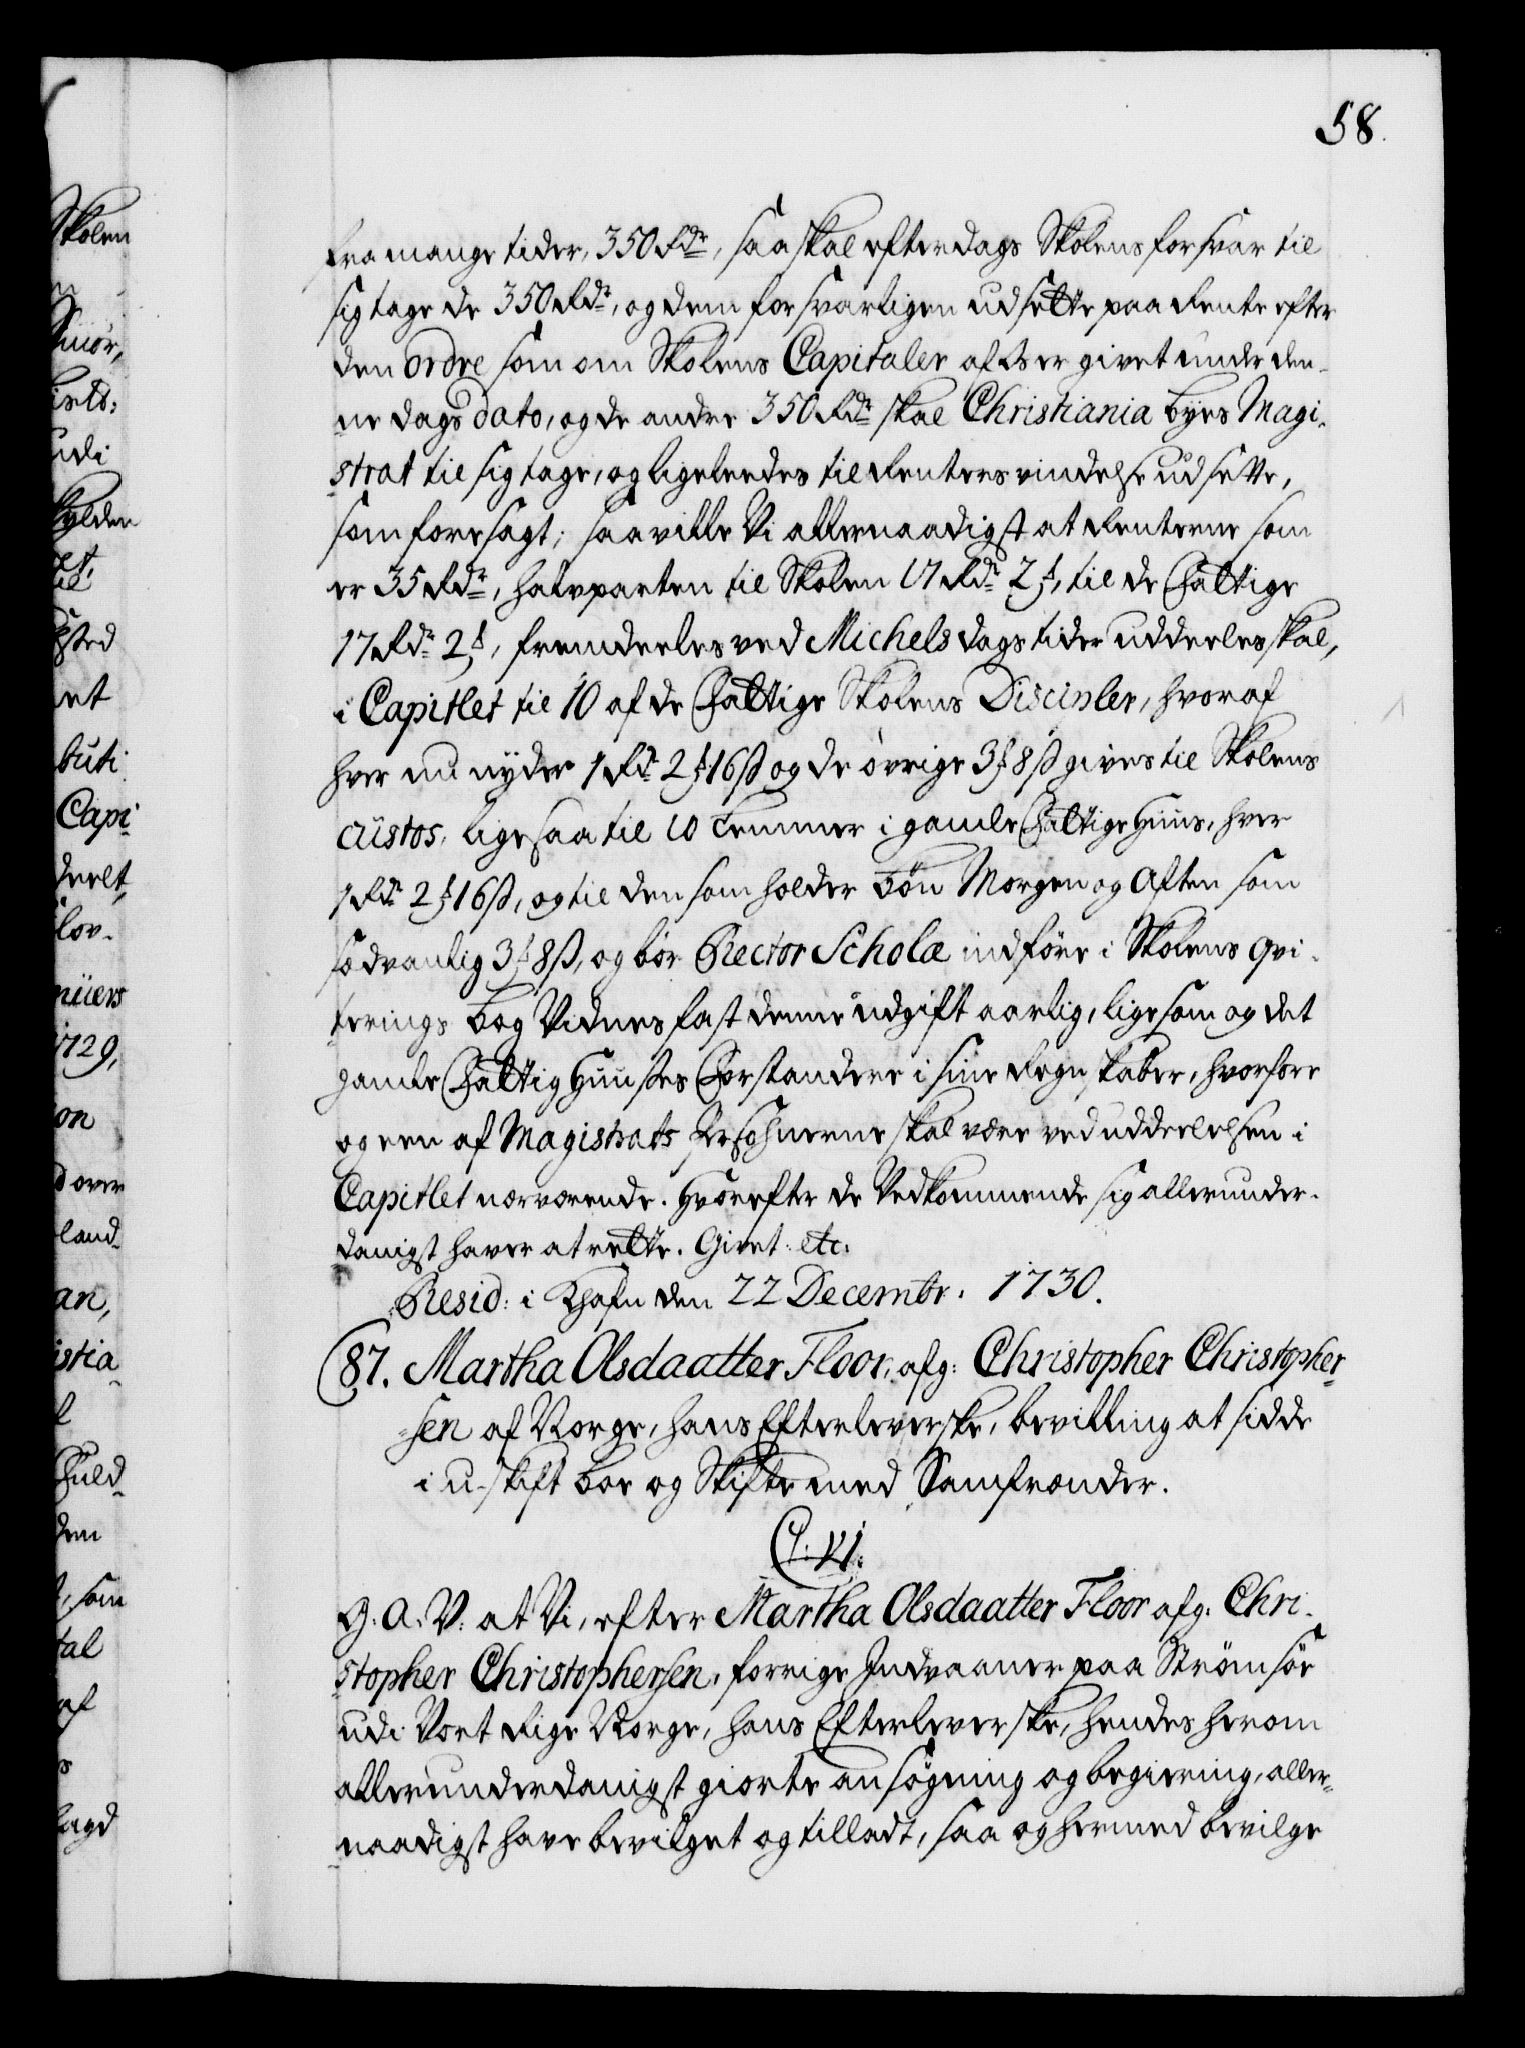 58.
fra mange tider, 350 Rdr, saa skal efterdags Skolens forsvar til
sig tage de 350 Rdr, og dem forsvarligen udsette paa Rente efter
den ordre som om Skolens Capitaler af Os er givet under den-
ne dags dato, og de andre 350 Rdr skal Christiania byes Magi-
strat til sig tage, og ligeleedes til Renters vindelse udsette,
som foresagt; saa ville Vi allernaadigst at Renterne som
er 35 Rdr, halvparten til Skolen 17 Rdr 2 ℔, til de Fattige
17 Rdr 2 ℔, fremdeeles ved Michels dags tider uddeeles skal,
i Capitlet til 10 af de Fattige Skolens Discipler, hvoraf
hver nu nyder 1 Rdr 2 ℔ 16 ß og de øvrige 3 ℔ 8 ß gives til Skolens
Custos, lige saa til 10 Lemmer i gamle Fattige Huus, hver
1 Rdr 2 ℔ 16 ß, og til den som holder Bøn Morgen og Aften som
sædvanlig 3 ℔ 8 ß, og bør Rector Scholæ indføre i Skolens Qvi-
terings bog Vidnesfast denne udgift aarlig, ligesom og det
gamle Fattig Huuses Forstandere i sine Regnskaber, hvorfore
og een af Magistrats Persohnerne skal være ved uddeelelsen i
Capitlet nærværende. Hvorefter de Vedkommende sig allerunder-
danigst haver at rette. Givet: etc:
Resid: i Khafn den 22 Decembr. 1730.
87. Martha Olsdaatter Floor, afg: Christopher Christopher-
sen af Norge, hans Efterleverske, bevilling at sidde
i u-skift boe og Skifte med Samfrænder.
C: VI:
G: A: V: at Vi, efter Martha Olsdaatter Floor afg: Chri-
stopher Christophersen, forrige Indvaaner paa Strømsøe
udi Vort Rige Norge, hans Efterleverske, hendes herom
allerunderdanigst giorte ansøgning og begiering, aller-
naadigst have bevilget og tilladt, saa og hermed bevilge